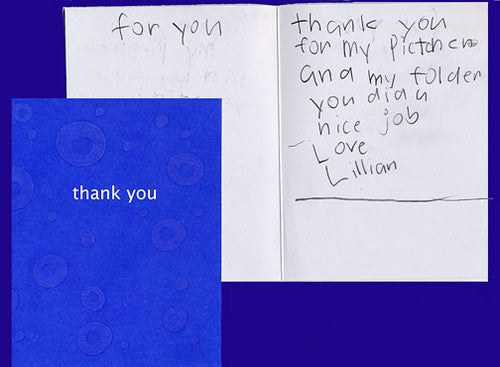 for you
thank you
for my pictcher
and my folder
you did a
nice job
Love
Lillian
thank you